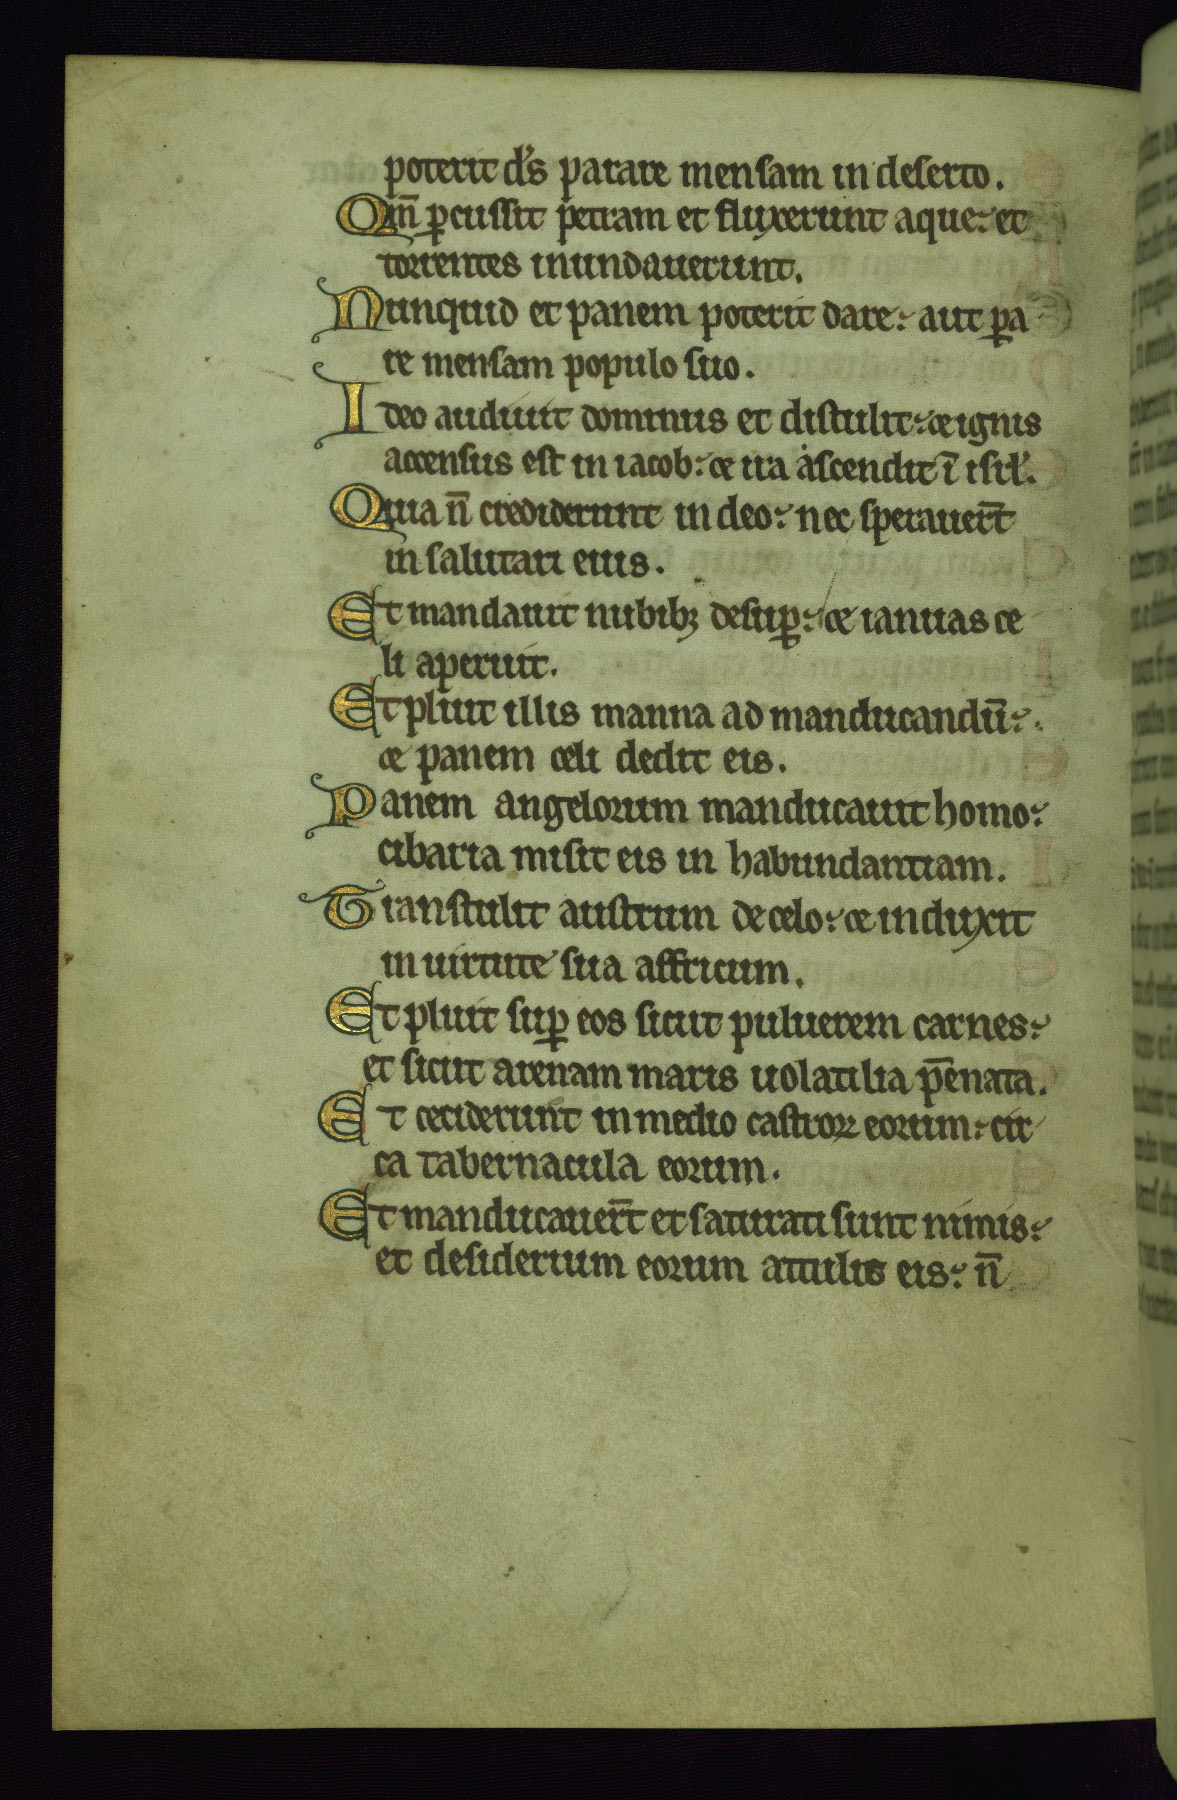 poterit d's parare mensam in deserto.
Qm̄ ꝑcussit petram et fluxerunt aque: et
torrentes inundauerunt.
Nunquid et panem poterit dare: aut ꝑa
re mensam populo suo.
Ideo audiuit dominus et distulit: & ignis
accensus est in iacob: & ira ascendit ī isrl'.
Quia n̄ crediderunt in deo: nec sperauer̄t
in salutari eius.
Et mandauit nubibꝫ desuꝑ: & ianuas ce
li aperuit.
Et pluit illis manna ad manducandū:.
& panem celi dedit eis.
Panem angelorum manducauit homo:
cibaria misit eis in habundantiam.
Transtulit austrum de celo: & induxit
in uirtute sua affricum.
Et pluit suꝑ eos sicut puluerem carnes:
et sicut arenam maris uolatilia p̄enata.
Et ceciderunt in medio castroꝝ eorum: cir
ca tabernacula eorum.
Et manducauer̄t et saturati sunt nimis:
et desiderium eorum attulit eis: n̄